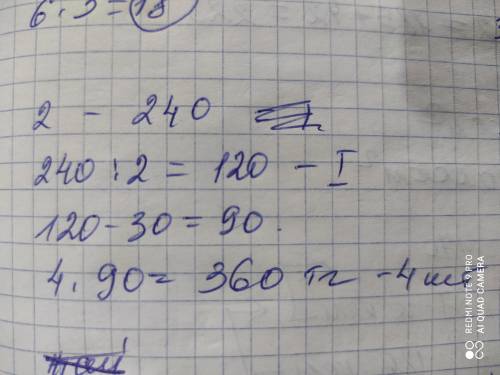 6 · 3 = 18
2 - 240
240 : 2 = 120 - I
120 - 30 = 90.
4 · 90 = 360 тг - 4 ш
REDMI NOTE 9 PRO
AI QUAD CAMERA